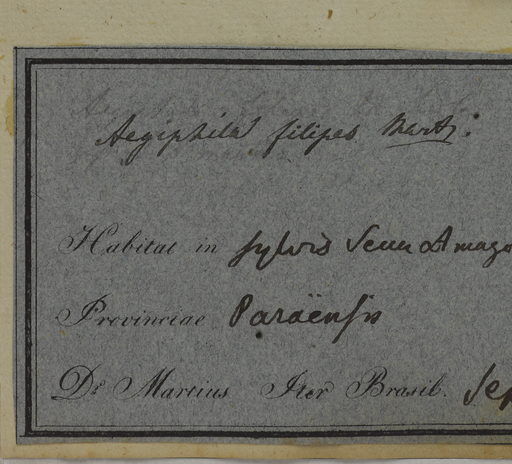 Aegiphila filipes Mart.
Habitat in sylvis Secus Amazo
Provinciae Paraënsis
Dr Martius Iter Brasil. Sep